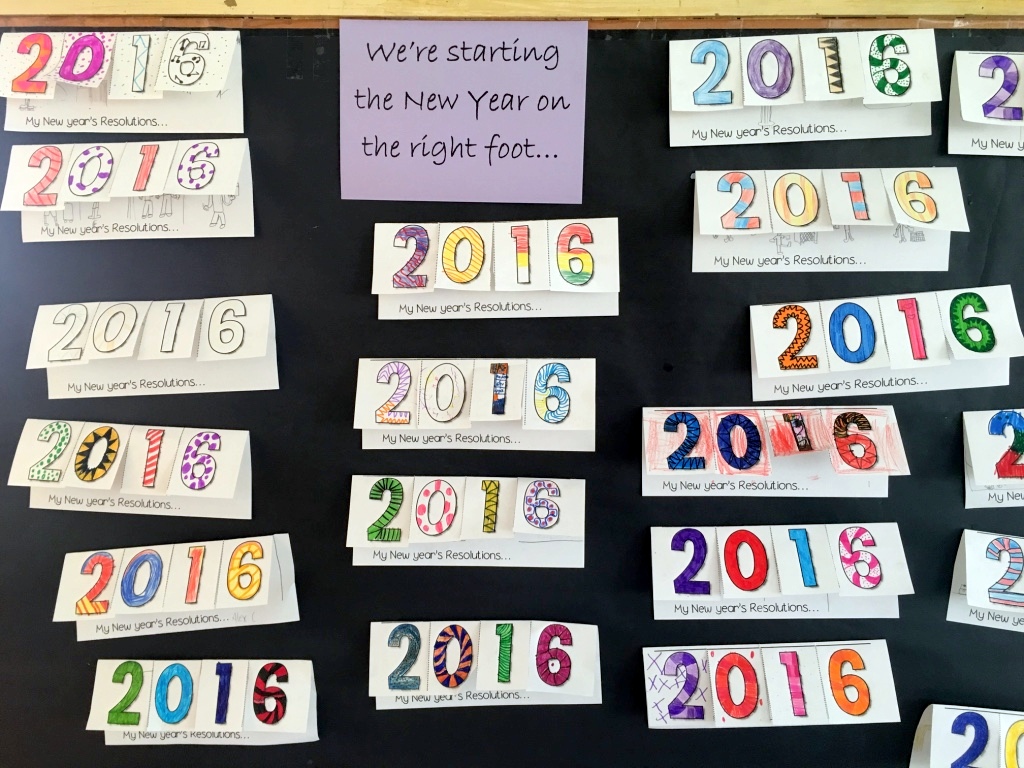 2016
My New year's Resolutions...
2016
My New year's Resolutions...
2016
My New year's Resolutions...
2016
My New year's Resolutions...
2016
My New year's Resolutions...
2016
My New year's Resolutions...
We're starting
the New Year on
the right foot...
2016
My New year's Resolutions...
2016
My New year's Resolutions...
2016
My New year's Resolutions...
2016
My New year's Resolutions...
2016
My New year's Resolutions...
2016
My New year's Resolutions...
2016
My New year's Resolutions...
2016
My New year's Resolutions...
2016
My New year's Resolutions...
2016
2
My N
2
My
2
My Ne
20